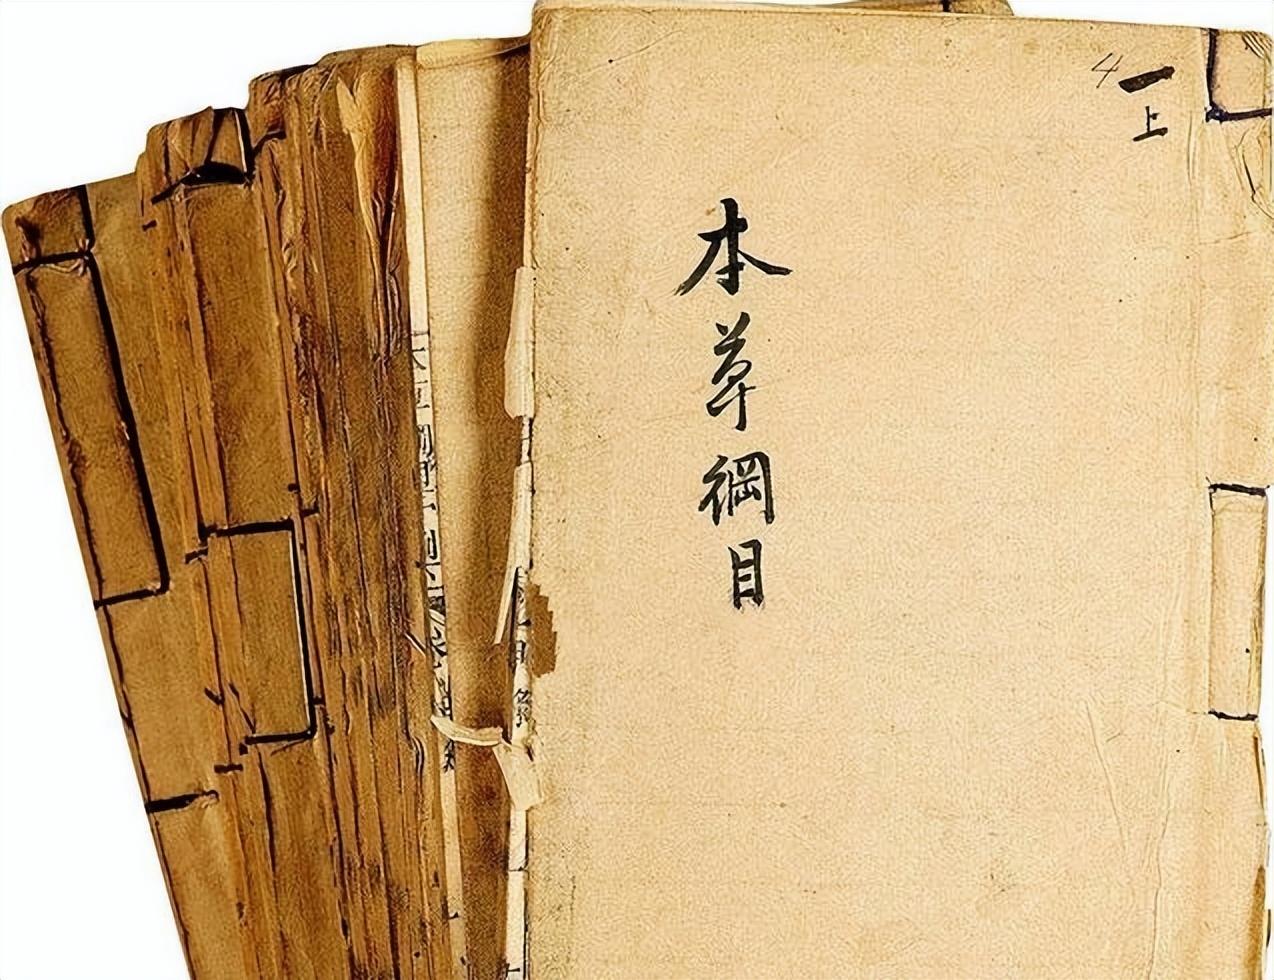 4
一上
本草綱目